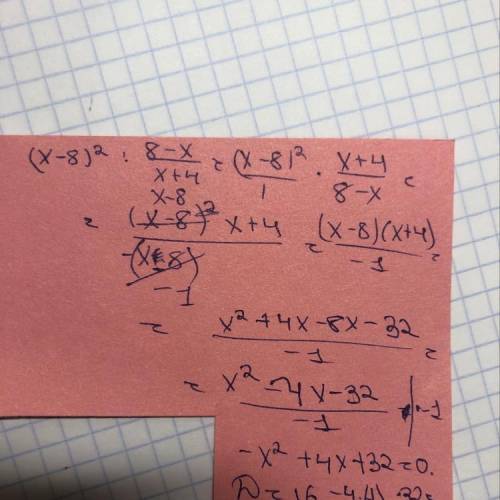 (x-8)² : (8-x)/(x+4) = (x-8)²/1 · (x+4)/(8-x) =
x-8
= (x-8)² x+4 / -(x-8) = (x-8)(x+4)/-1 =
-1
= x²+4x-8x-32 / -1 =
= x²-4x-32 / -1 | ·-1
-x²+4x+32=0.
D=16-4·